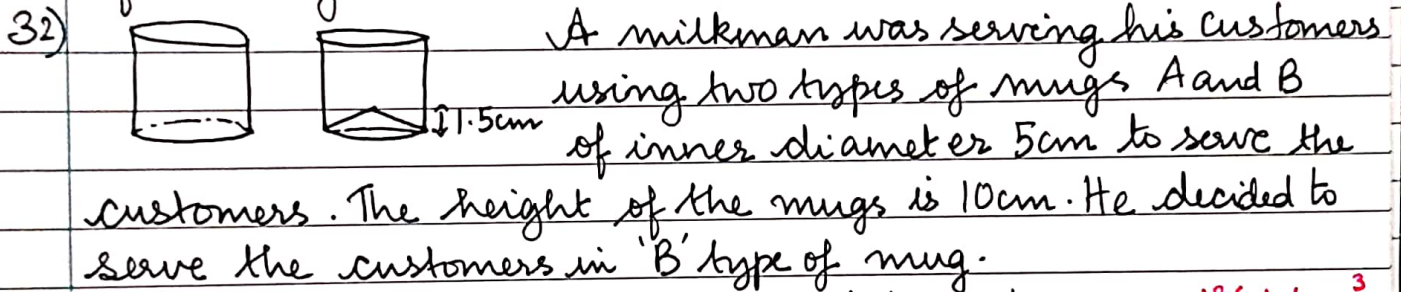 32)
A milkman was serving his customers
using two types of mugs A and B
1.5cm
of inner diameter 5cm to serve the
customers. The height of the mugs is 10cm. He decided to
serve the customers in 'B' type of mug.
3